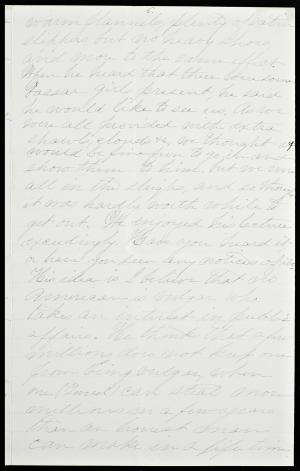 6.
warm flannels, plenty of
slippers but no heavy shoes,
and more to the same effect.
When he heard that there were some
Vassar girls present, he said
he would like to see us. As we
were all provided with extra
shawls, clouds &c, we thought it
would be fine fun to go in and
show them to him, but we were
all in the sleighs, and so
it was hardly worth while to
get out. We enjoyed his lecture
exceedingly. Have you heard it
or have you seen any notices of it
His idea is I believe that no
American is vulgar who
takes an interest in public
affairs. We think that a few
millions does not keep one
from being vulgar, when
one (Tweed) can steal more
millions in a few years
than an honest man
can make in a life time.